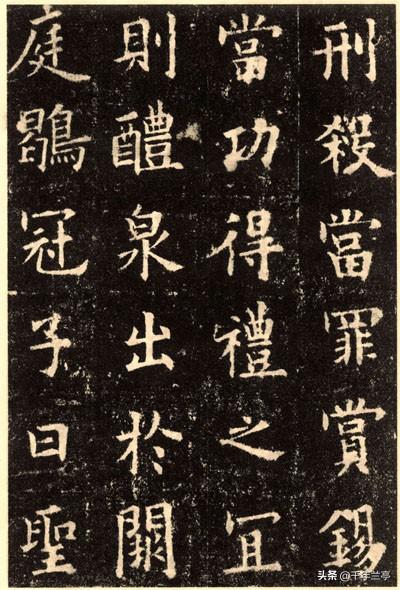 刑殺當罪賞錫
當功得禮之宜
則醴泉出於闕
庭鶡冠子曰聖
头条 @千手兰亭